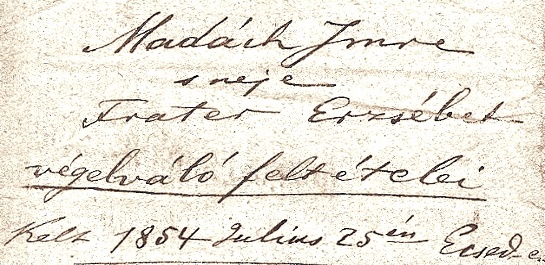 Madách Imre
s neje
Frater Erzsébet
végelváló feltételei
Kelt 1854 Julius 25én